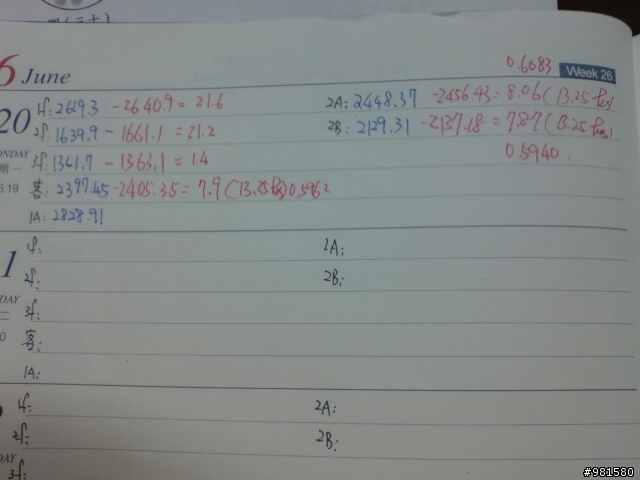 6 June
0.6083
Week 26
20 1f: 2619.3 - 2640.9 = 21.6
2A: 2448.37 - 2456.43 = 8.06 (13.25 hrs)
2f: 1639.9 - 1661.1 = 21.2
2B: 2129.31 - 2137.18 = 7.87 (13.25 hrs)
3f: 1361.7 - 1363.1 = 1.4
0.5940
客: 2397.45 - 2405.35 = 7.9 (13.25 hrs) 0.5962
1A: 2828.91
1f:
2A:
2f:
2B:
3f:
客:
1A:
1f:
2A:
2f:
2B:
3f:
#981580